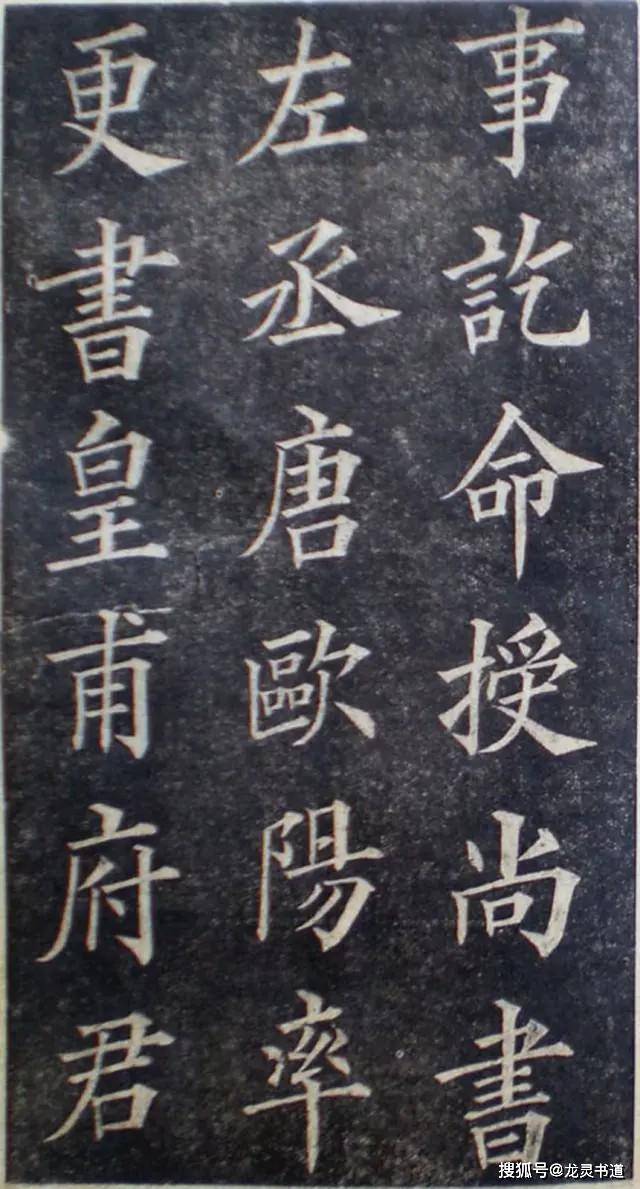 事訖命授尚書
左丞唐歐陽率
更書皇甫府君
搜狐号@龙灵书道